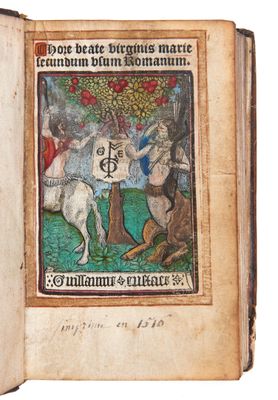 Hore beate virginis marie
secundum vsum Romanum.
G E
Guillaume eustace
imprimé en 1516